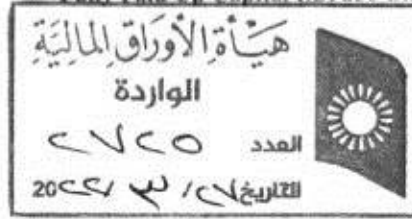 هيأة الأوراق المالية
الواردة
العدد ٢٧٢٥
التاريخ ٢٧/ ٣ / 20٢٢